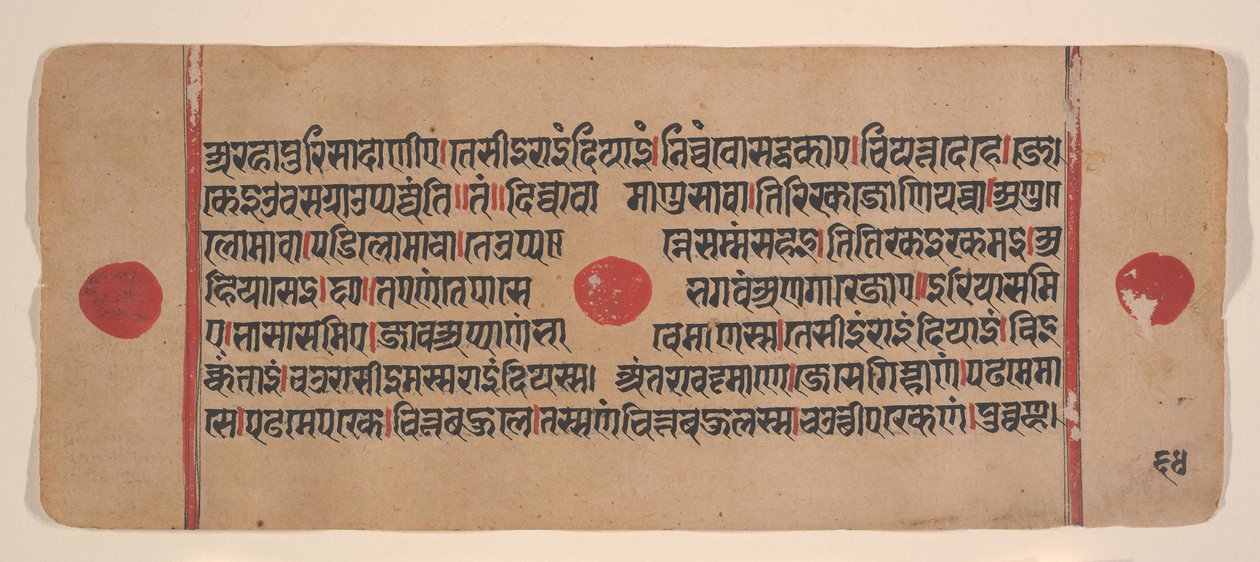 अरहापुरिसादाणीए।तेसीइराइंदियाइं।निच्चंवोसट्ठकाए।चियत्तदेहे।जे
केइउवसग्गाउप्पज्जंति॥तं॥दिव्वावा माणुसावा।तिरिक्खजोणियावा।अणु
लोमावा।पडिलोमावा।तेउप्प न्नेसम्मंसहइ।तितिक्खइखमइ।अ
हियासेइ।छ॥तएणंसेपासे भगवंअणगारेजाए॥इरियासमि
ए।भासासमिए।जावअप्पाणंभा वेमाणस्स।तेसीइंराइंदियाइं।विइ
क्कंताइं।चउरासीइमस्सराइंदियस्स। अंतरावट्टमाणे।जेसेगिम्हाणं।पढमेमा
से।पढमेपक्खे।चित्तबहुले।तस्सणंचित्तबहुलस्स।चउत्थीपक्खेणं।पुव्वण्ह।
६४